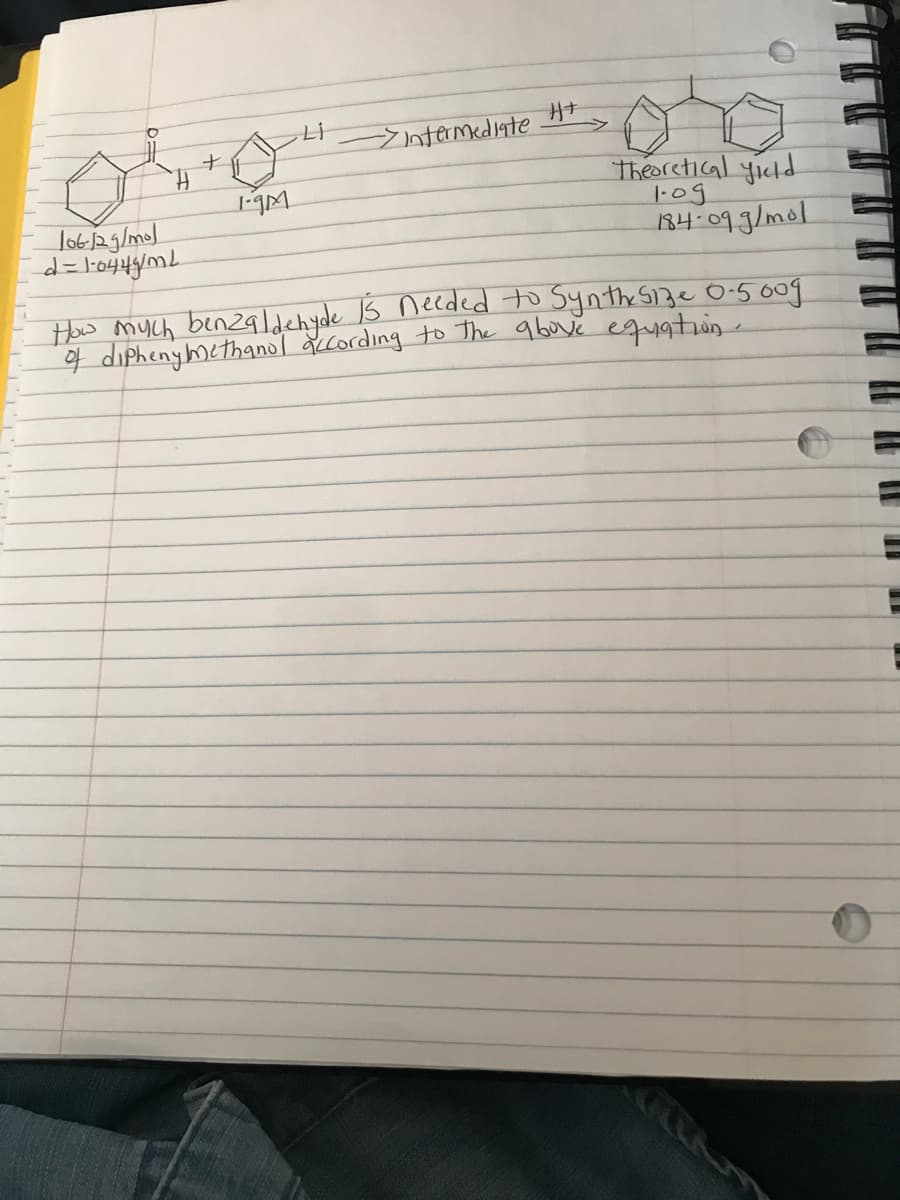 O
H + Li → Intermediate H+ →
1.9M
Theoretical yield
1.0g
184.09 g/mol
106.12 g/mol
d = 1.044g/mL
How much benzaldehyde is needed to Synthesize 0.500g
of diphenylmethanol according to the above equation.